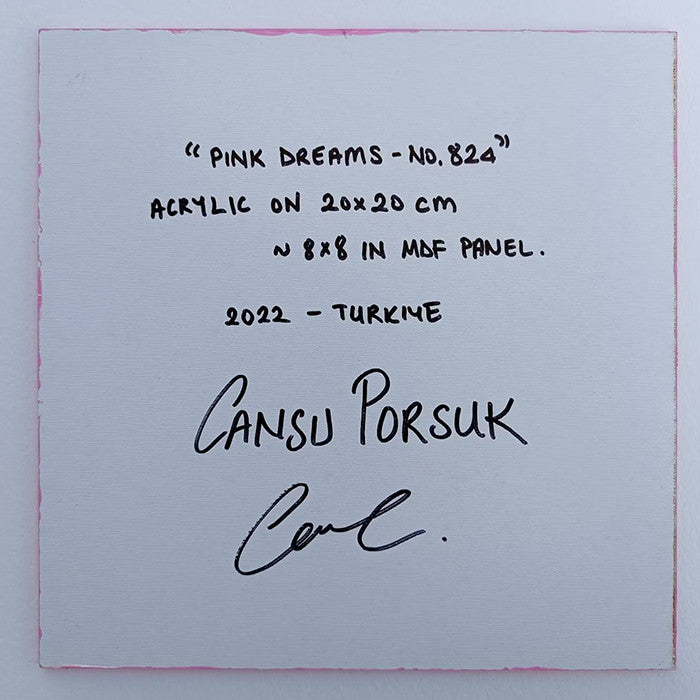 “PINK DREAMS - NO. 824”
ACRYLIC ON 20x20 cm
~ 8x8 IN MDF PANEL.
2022 - TURKIYE
CANSU PORSUK